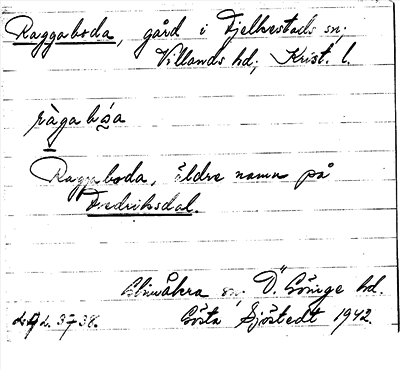 Raggaboda, gård i Fjelkestads sn;
Villands hd; Krist. l.
ràgabóa
Raggaboda, äldre namn på
Fredriksdal.
Glimåkra sn. Ö. Göinge hd.
Gösta Sjöstedt 1942.